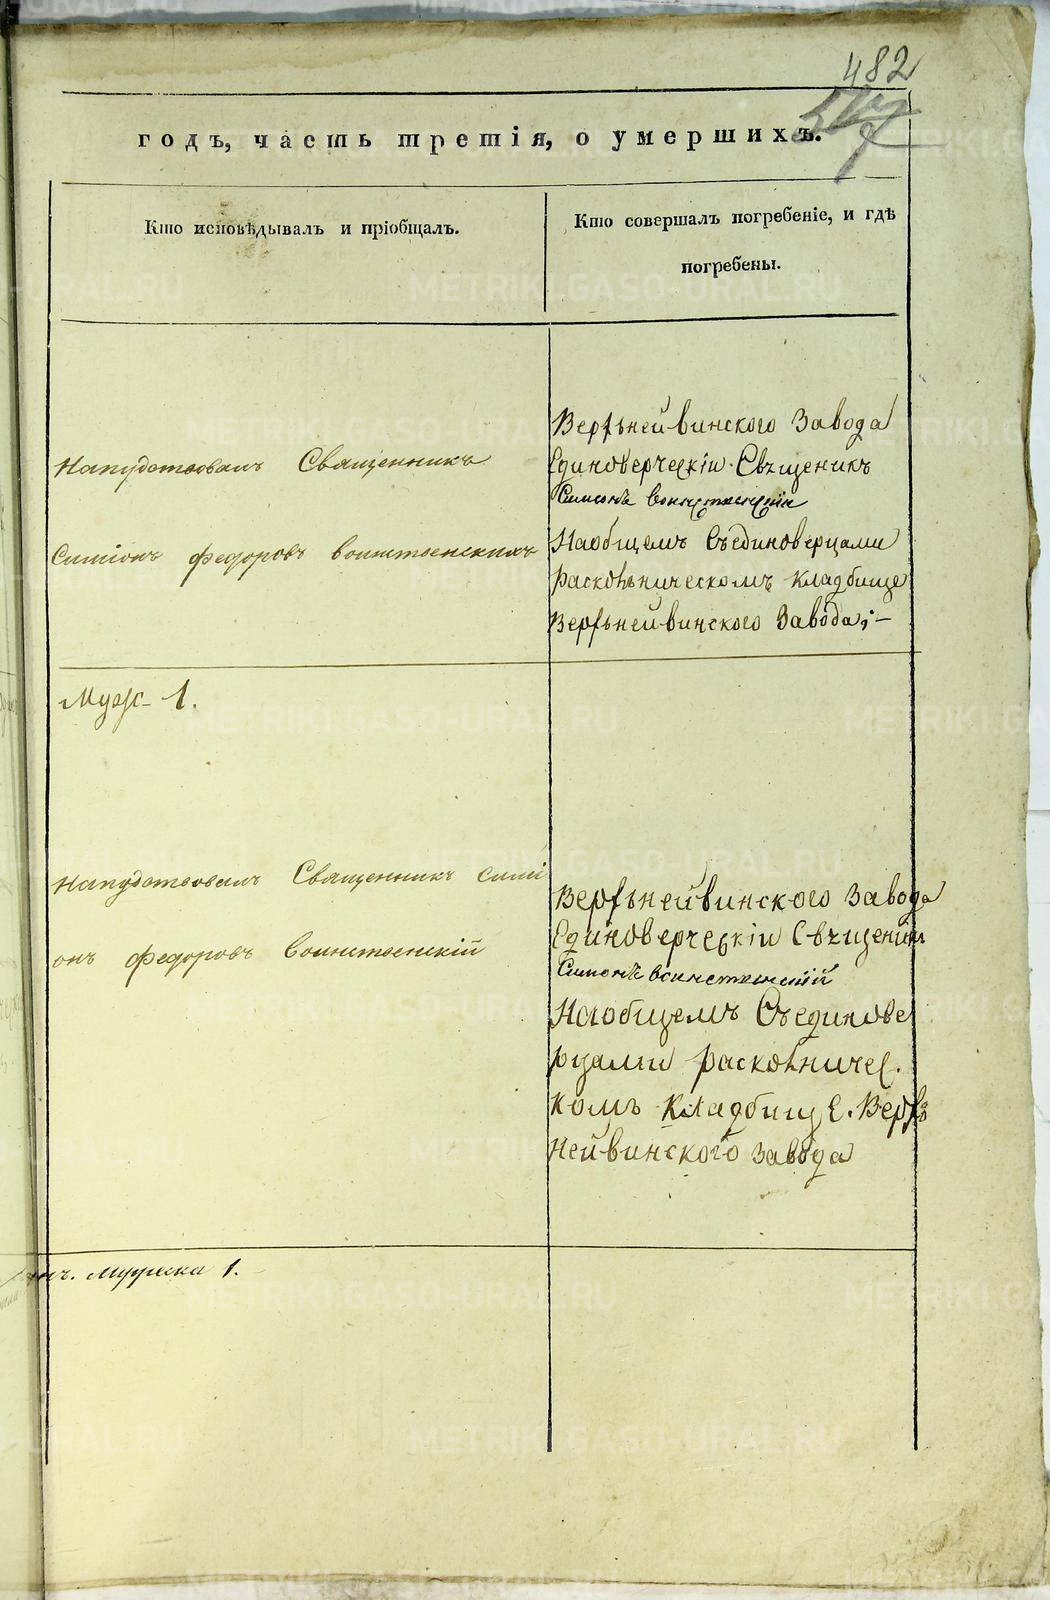 482
годъ, часть третія, о умершихъ.
Кто исповѣдывалъ и пріобщалъ.
Кто совершалъ погребеніе, и гдѣ
погребены.
Напутствовалъ Священникъ
Симіонъ федоровъ воинственскихъ
Верхънейвинского Завода
Единоверческіи Свѣщеникъ
Симеонъ Воинственскіи
Наобщемъ Съединоверцами
раскольническомъ кладбище
Верхънейвинского Завода;-
Муж- 1.
Напутствовалъ Священникъ Симі
онъ федоровъ Воинственскій
Верхънейвинского Завода
Единоверческіи Свѣщеникъ
Симеонъ воинственскій
Наобщемъ Съединове
рцами раскольничес.
комъ кладбище. Верхъ
нейвинского завода
мужска 1.
METRIKI.GASO-URAL.RU